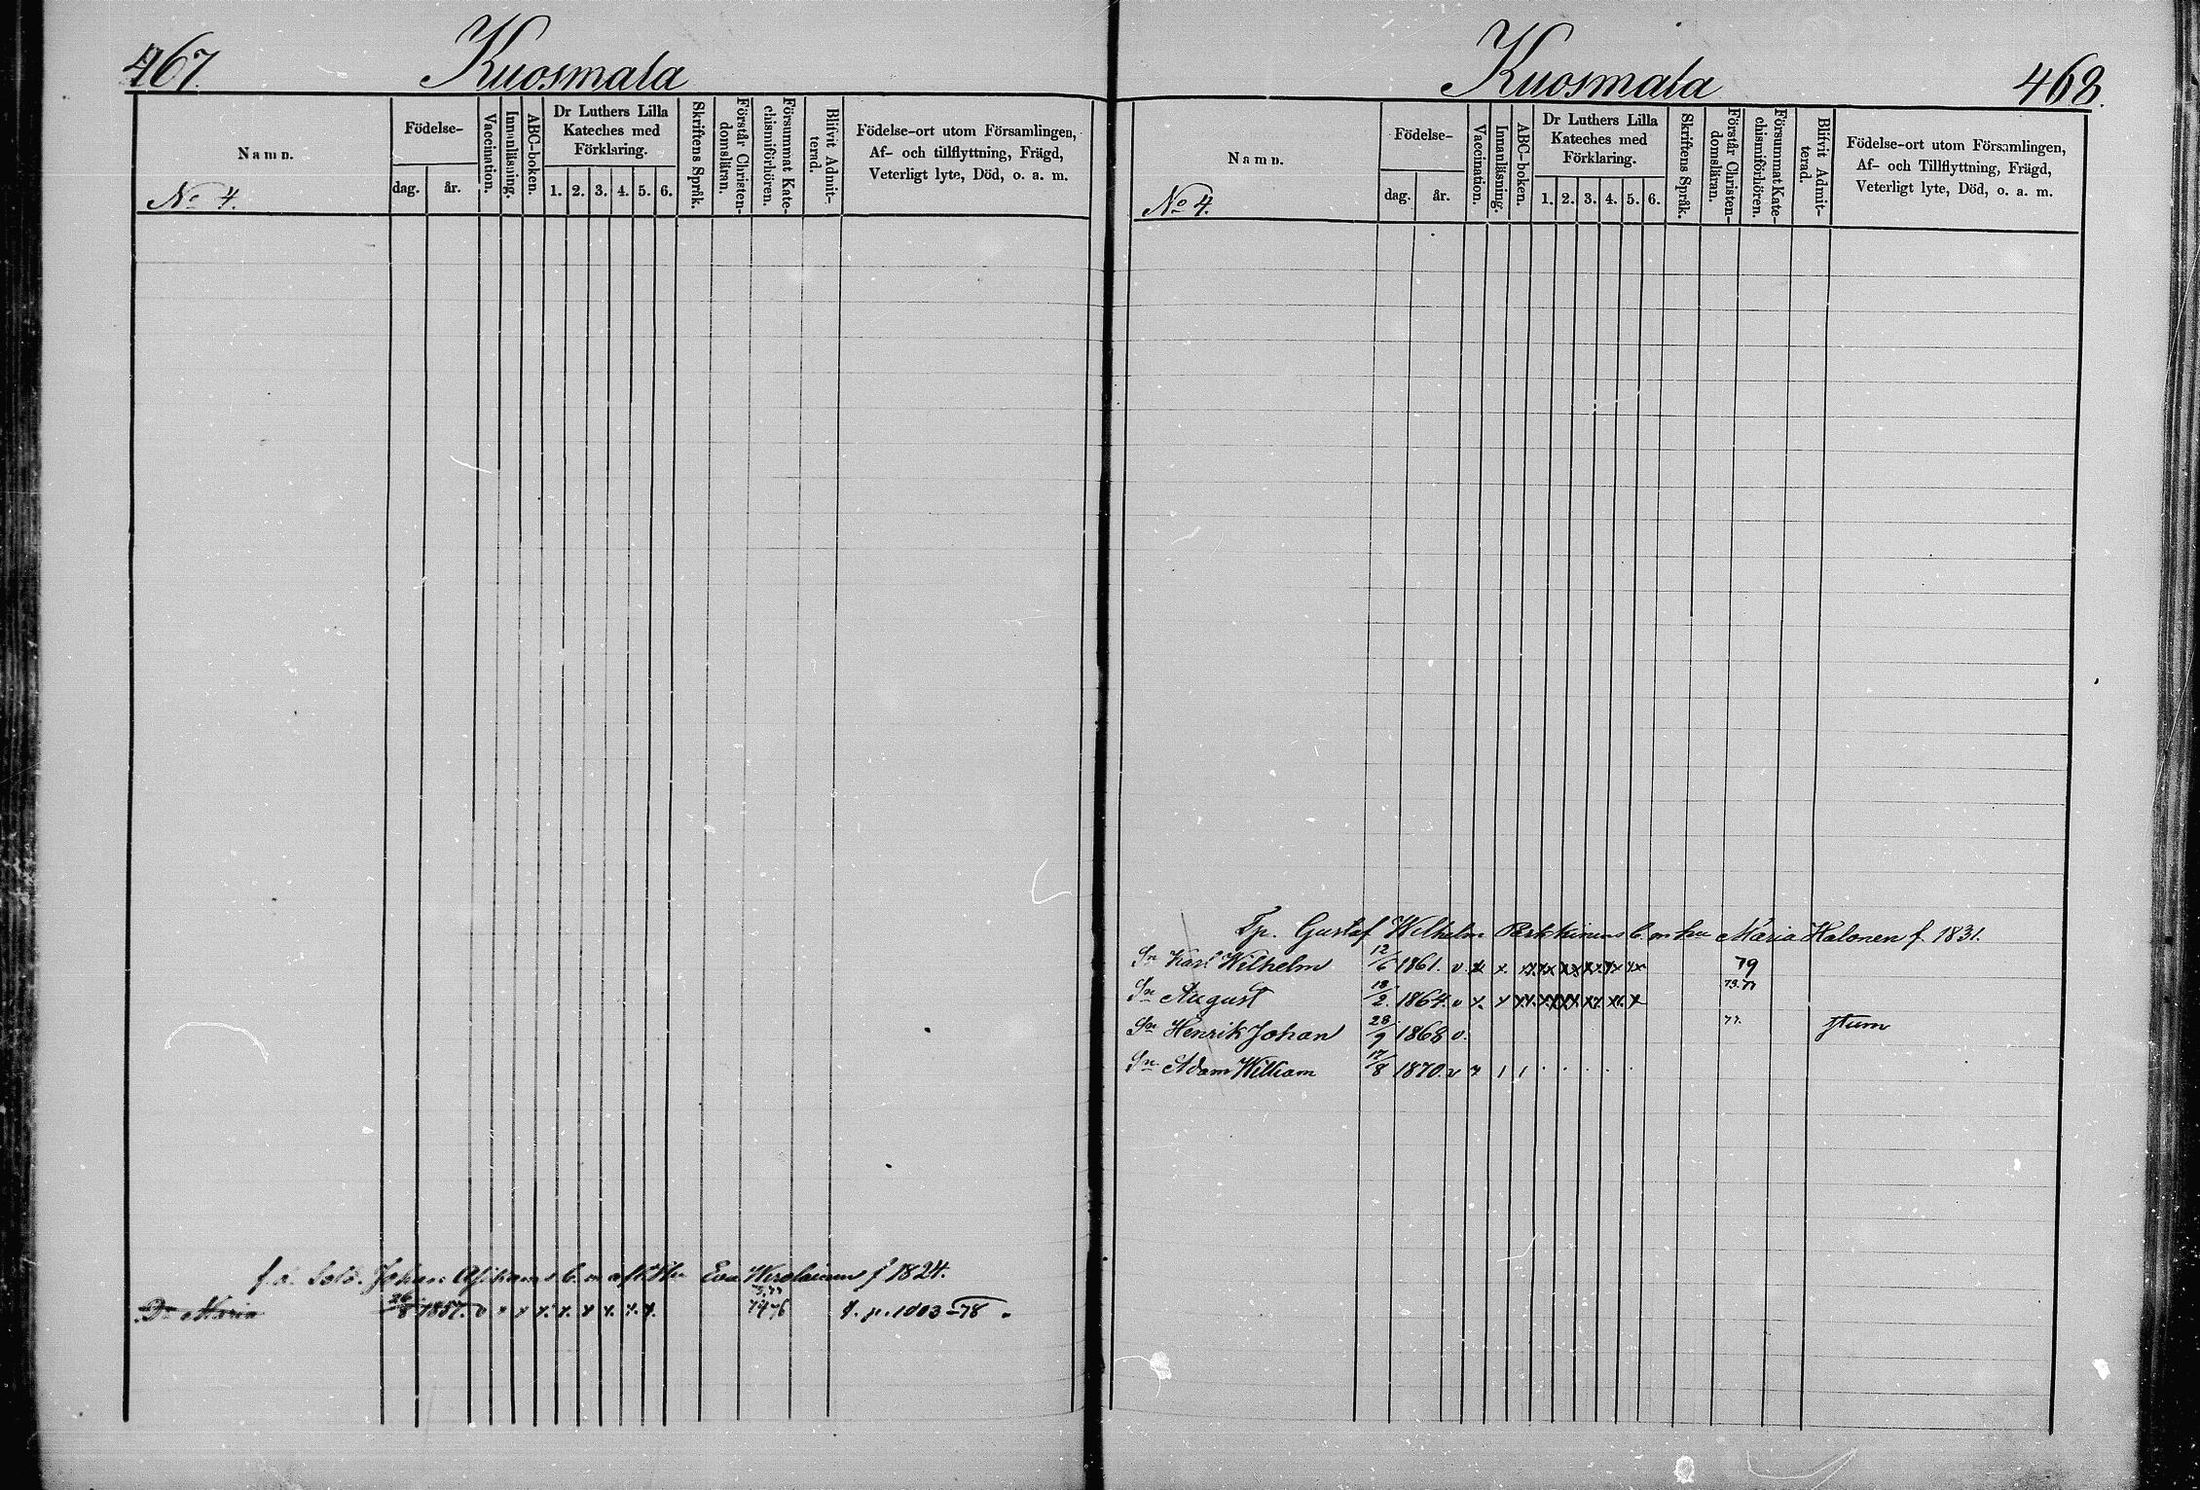 467.
Kuosmala
Namn.
No 4.
Födelse-
dag.
år.
Vaccination.
Innanläsning.
ABC-boken.
Dr Luthers Lilla
Kateches med
Förklaring.
1. 2. 3. 4. 5. 6.
Skriftens Språk.
Förstår Christen-
domsläran.
Försummat Kate-
chismiförhören.
Blifvit Admit-
terad.
Födelse-ort utom Församlingen,
Af- och tillflyttning, Frägd,
Veterligt lyte, Död, o. a. m.
f. d. Sold. Johan b. m Eva f 1824.
Dr Maria 26/8 1857. v x x x. x. x x. x. x. 75.77 7476 p. 1003-78
Kuosmala
468.
Namn.
No 4.
Födelse-
dag.
år.
Vaccination.
Innanläsning.
ABC-boken.
Dr Luthers Lilla
Kateches med
Förklaring.
1. 2. 3. 4. 5. 6.
Skriftens Språk.
Förstår Christen-
domsläran.
Försummat Kate-
chismiförhören.
Blifvit Admit-
terad.
Födelse-ort utom Församlingen,
Af- och Tillflyttning, Frägd,
Veterligt lyte, Död, o. a. m.
Tp. Gustaf Wilhelm b. m hu Maria Halonen f. 1831.
Sn Karl Wilhelm 12/6 1861. v x x. xx xx xx xx xx xx 79
Sn August 13/2. 1864. v x x xx xx xx xx xx x 73.77
Sn Henrik Johan 28/9 1868 v. 77. stum
Sn Adam William 17/8 1870. v